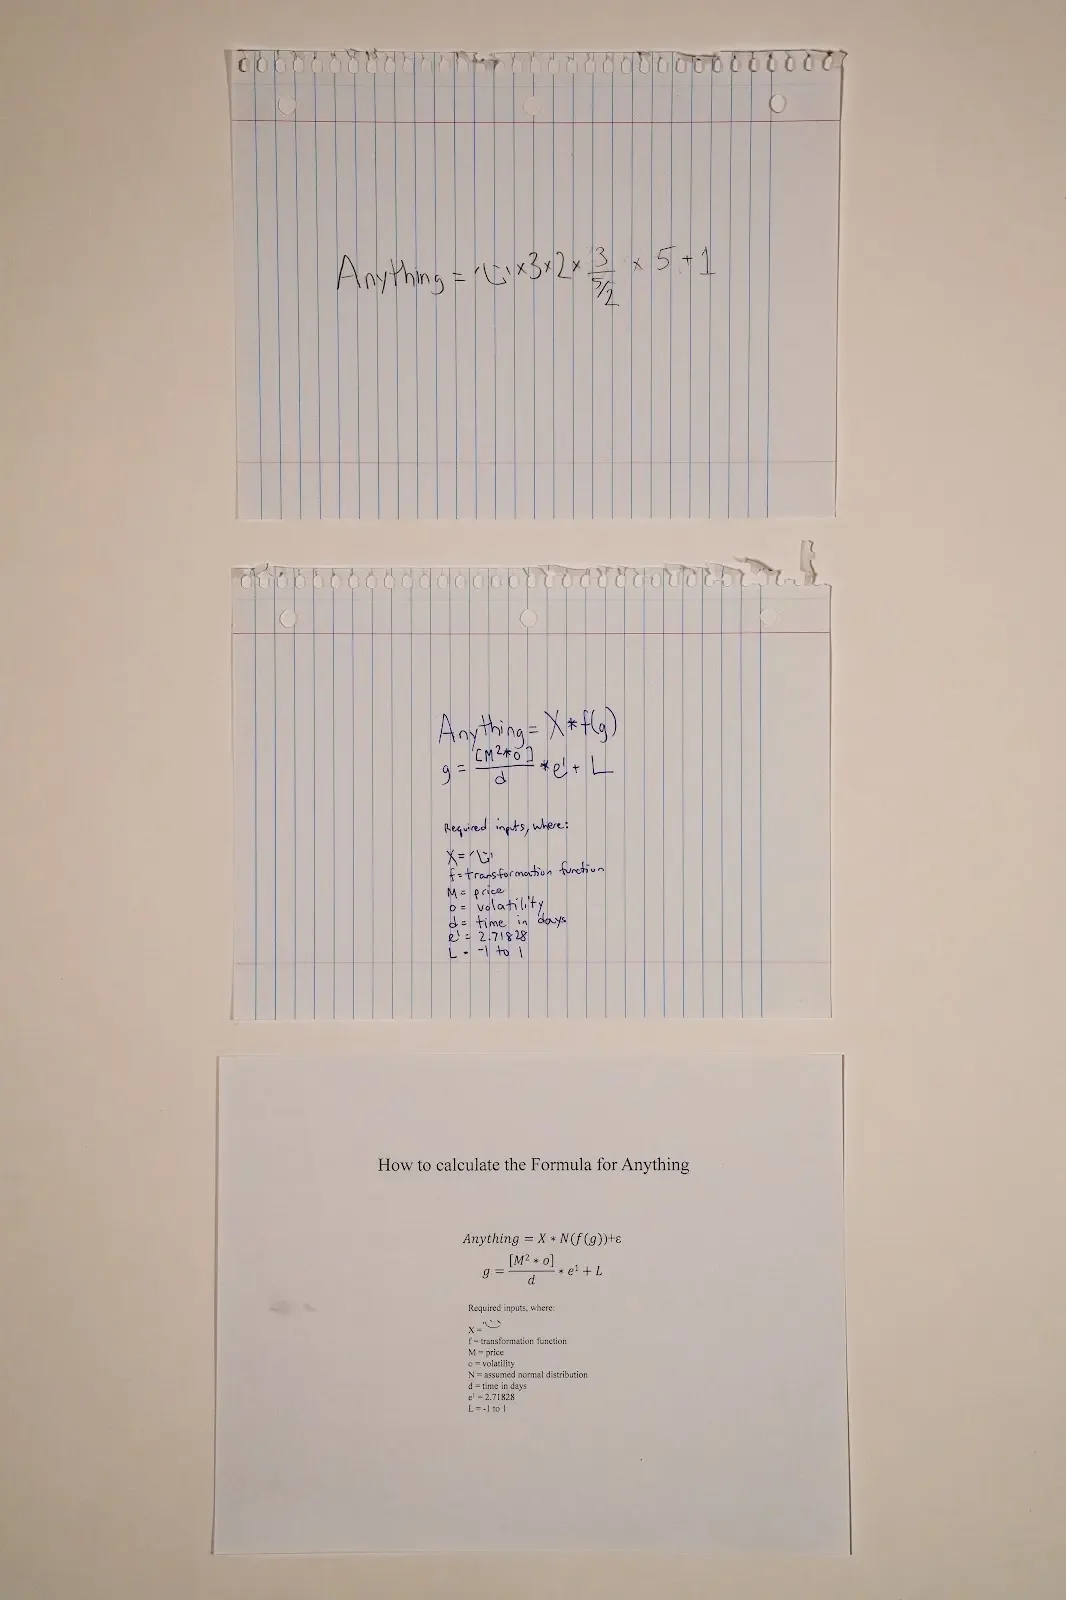 Anything = ×3×2× 3/(5/2) × 5 + 1
Anything = X * f(g)
g = [M²*o]/d * e¹ + L
Required inputs, where:
X =
f = transformation function
M = price
o = volatility
d = time in days
e¹ = 2.71828
L = -1 to 1
How to calculate the Formula for Anything
Anything = X * N(f(g))+ε
g = [M² * o]/d * e¹ + L
Required inputs, where:
X =
f = transformation function
M = price
o = volatility
N = assumed normal distribution
d = time in days
e¹ = 2.71828
L = -1 to 1